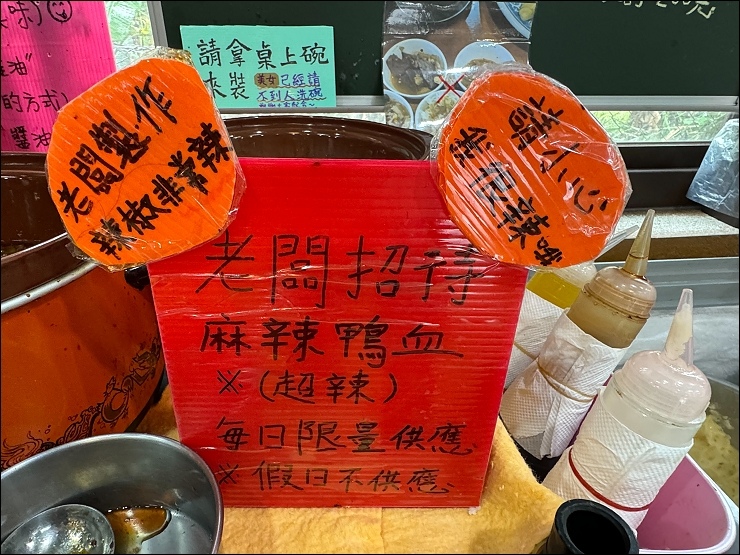 味)
油"
的方式)
醬油
請拿桌上碗
木裝
美女已經請
不到人洗碗
元
老闆製作
辣椒非常辣
請小心
辣
老闆招待
麻辣鴨血
※(超辣)
每日限量供應
※假日不供應